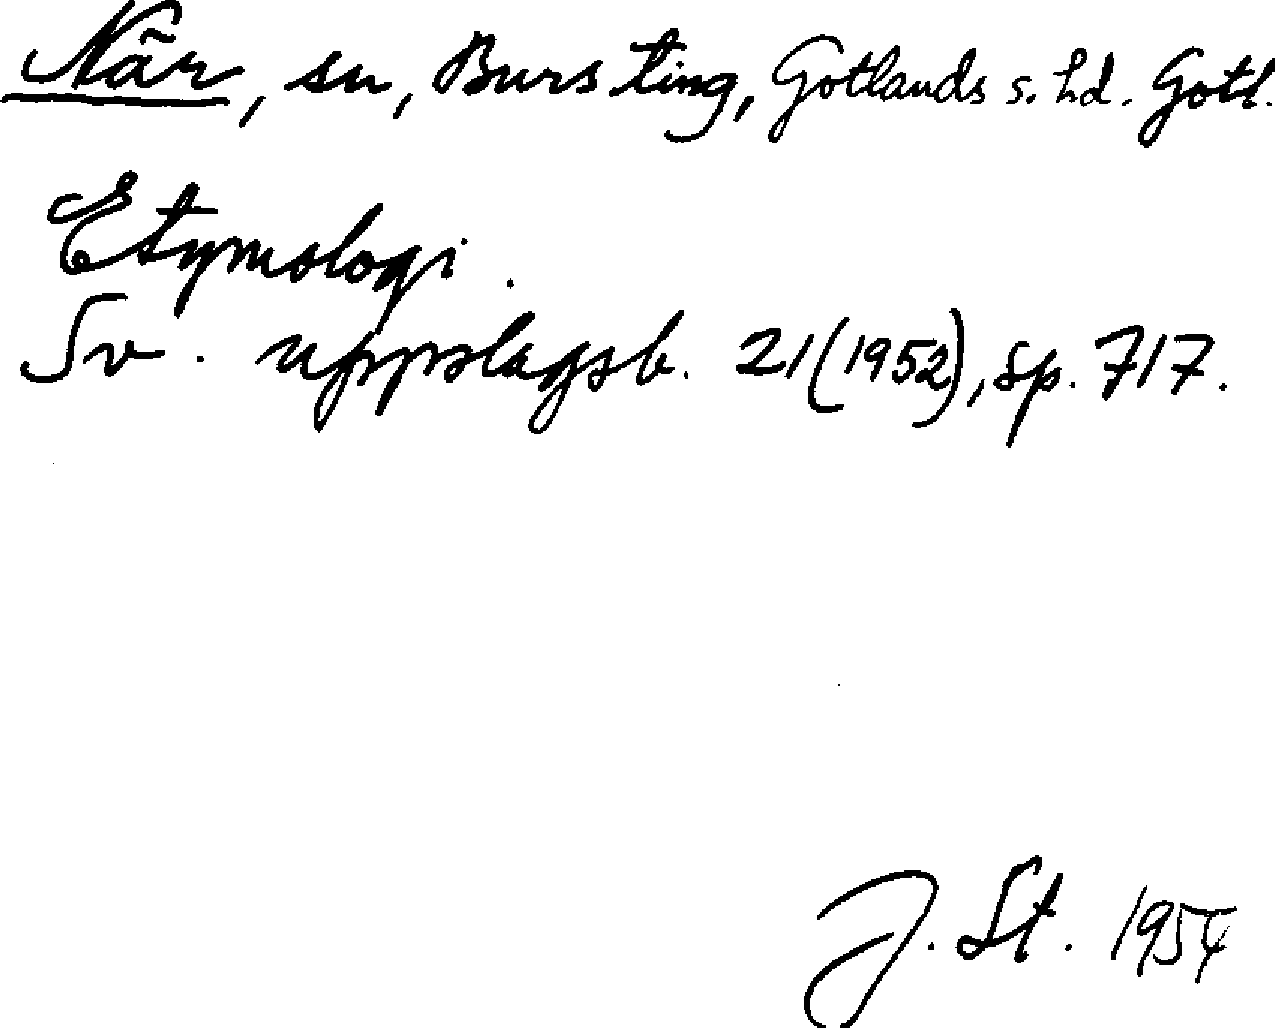 När, sn, Burs ting, Gotlands s. hd. Gotl.
Etymologi.
Sv. uppslagsb. 21 (1952), sp. 717.
J. St. 1954